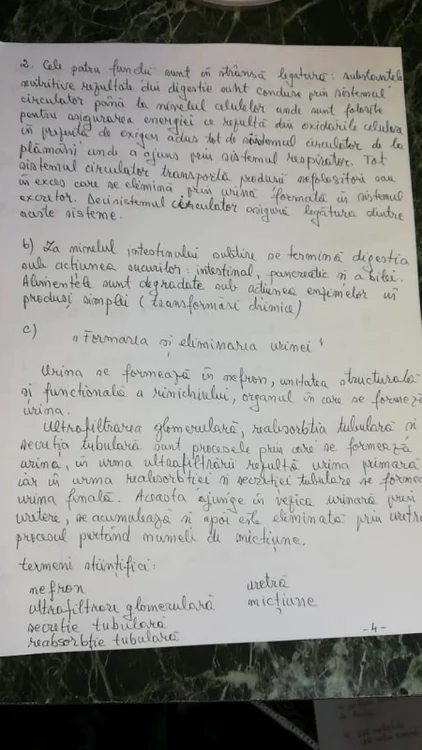 2. Cele patru funcții sunt în strânsă legătură: substanțele
nutritive rezultate din digestie sunt conduse prin sistemul
circulator până la nivelul celulelor unde sunt folosite
pentru asigurarea energiei ce rezultă din oxidările celulare
în prezența de oxigen adus tot de sistemul circulator de la
plămâni unde a ajuns prin sistemul respirator. Tot
sistemul circulator transportă produșii nefolositori sau
în exces care se elimină prin urină formată în sistemul
excretor. Deci sistemul circulator asigură legătura dintre
aceste sisteme.
b) La nivelul intestinului subțire se termină digestia
sub acțiunea sucurilor: intestinal, pancreatic și a bilei.
Alimentele sunt degradate sub acțiunea enzimelor în
produși simpli (transformări chimice)
c) "Formarea și eliminarea urinei"
Urina se formează în nefron, unitatea structurală
și funcțională a rinichiului, organul în care se formează
urina.
Ultrafiltrarea glomerulară, reabsorbția tubulară și
secreția tubulară sunt procesele prin care se formează
urina, în urma ultrafiltrării rezultă urina primară
iar în urma reabsorbției și secreției tubulare se formează
urina finală. Aceasta ajunge în vezica urinară prin
uretere, se acumulează și apoi este eliminată prin uretră
procesul purtând numele de micțiune.
termeni științifici:
nefron uretră
ultrafiltrare glomerulară micțiune
secreție tubulară
reabsorbție tubulară
-4-